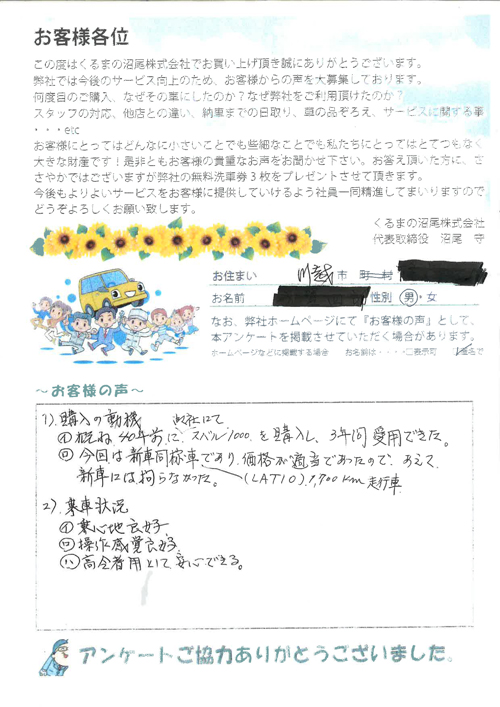 お客様各位
この度はくるまの沼尾株式会社でお買い上げ頂き誠にありがとうございます。
弊社では今後のサービス向上のため、お客様からの声を大募集しております。
何度目のご購入、なぜその車にしたのか？なぜ弊社をご利用頂けたのか？
スタッフの対応、他店との違い、納車までの日取り、車の品ぞろえ、サービスに関する事
・・・etc
お客様にとってはどんなに小さいことでも些細なことでも私たちにとってはとてつもなく
大きな財産です！是非ともお客様の貴重なお声をお聞かせ下さい。お答え頂いた方に、さ
さやかではございますが弊社の無料洗車券３枚をプレゼントさせて頂きます。
今後もよりよいサービスをお客様に提供していけるよう社員一同精進してまいりますので
どうぞよろしくお願い致します。
くるまの沼尾株式会社
代表取締役 沼尾 守
お住まい 川越 市 町 村
お名前 性別 男・女
なお、弊社ホームページにて『お客様の声』として、
本アンケートを掲載させていただく場合があります。
ホームページなどに掲載する場合 お名前は・・・・□表示可 □匿名で
～お客様の声～
1). 購入の動機 御社にて
㋑概ね40年前に、スバル1000を購入し、3年間愛用できた。
㋺今回は新車同様車であり、価格が適当であったので、あえて
新車には拘らなかった。 (LAT10).1,900km走行車
2). 乗車状況
㋑乗心地良好
㋺操作感覚良好
㋩高令者用として安心できる。
アンケートご協力ありがとうございました。